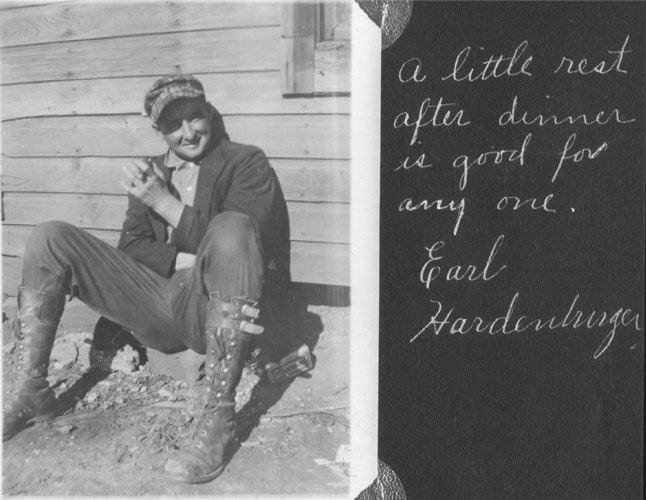 A little rest
after dinner
is good for
any one.
Earl
Hardenburger.